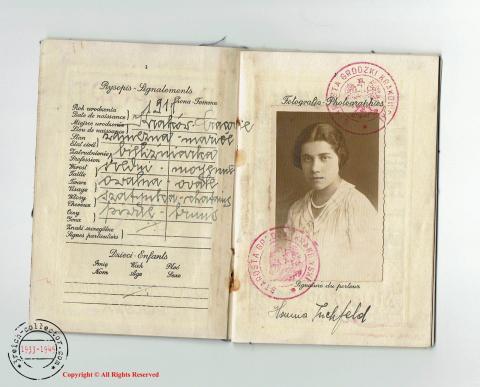 1
Rysopis-Signalements
Żona-Femme
Rok urodzenia
Date de naissance
1911
Miejsce urodzenia
Lieu de naissance
Kraków-Cracovie
Stan
Etat civil
zamężna-mariée
Zatrudnienie
Profession
Wzrost
Taille
średni - moyenne
Twarz
Visage
owalna - ovale
Włosy
Cheveux
Oczy
Yeux
Znaki szczególne
Signes particuliers
Dzieci-Enfants
Imię Wiek Płeć
Nom Age Sexe
Fotografie-Photographies
STAROSTA GRODZKI KRAKOWSKI
STAROSTA GRODZKI KRAKOWSKI
Signature du porteur
Hanna
3reich-collector.com
1933-1945
Copyright © All Rights Reserved